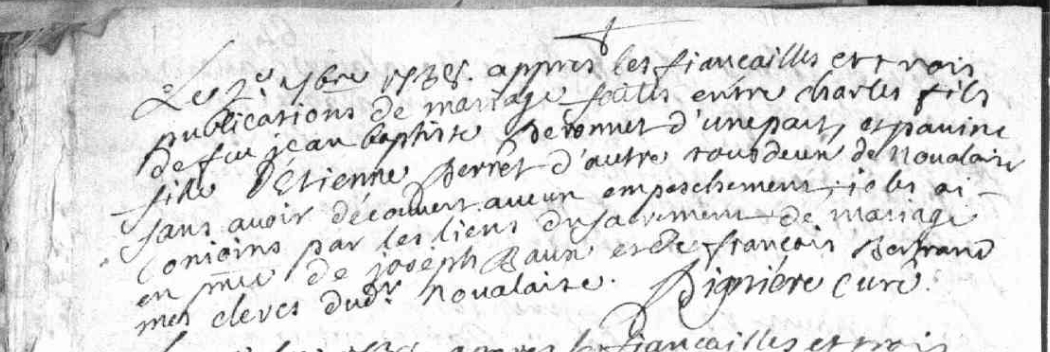 Le 2e 9bre 1735. appres les fiancailles et trois
publications de mariage faites entre charles fils
de feu jean baptiste Peronnet d'une part, et pavine
fille d'Etienne Perret d'autre tous deux de Novalaise
sans avoir découvert aucun empeschement, ie les ai
conioins par les liens du sacrement de mariage
en pnce de joseph Baun et de françois Bertrand
mes clercs dud. Novalaise. Pignière Curé.
appres les fiancailles et trois